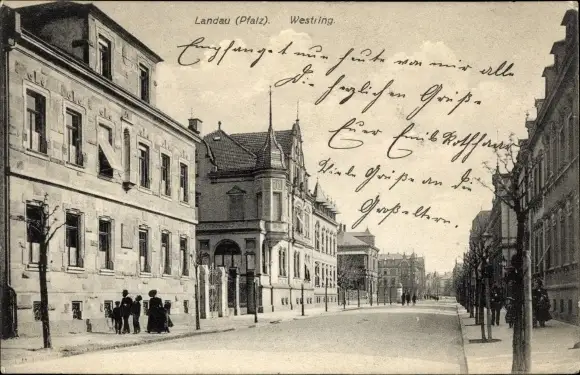 Landau (Pfalz). Westring.
Empfanget nun heute von mir alle
Die herzlichen Grüße
Euer Emil
Viele Grüße an die
Großeltern.